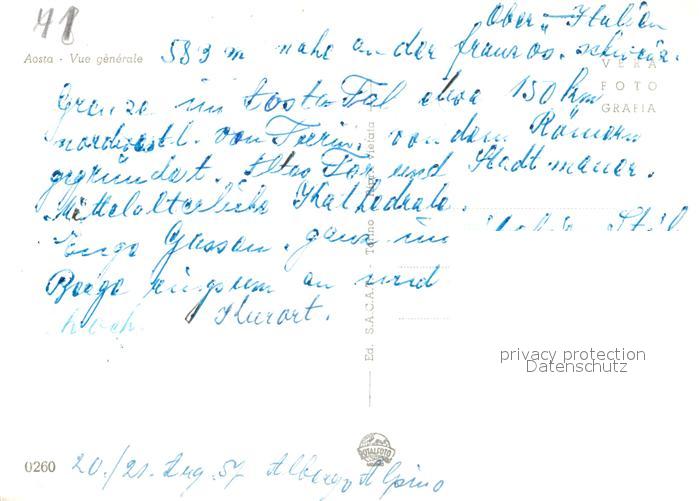 41
Ober-Italien
Aosta - Vue générale
583 m nahe an der französ. schweiz.
VERA
FOTO
GRAFIA
Grenze im Aosta Tal etwa 150 km
nordwestl. von Turin, von den Römern
gegründet. Altes Tor und Stadtmauer.
Mittelalterliche Kathedrale.
Enge Gassen, ganz im
Stil
Berge ringsum an und
hoch. Kurort.
Ed. S.A.C.A.T. Torino Vietata
privacy protection
Datenschutz
ROTALFOTO
0260
20./21. Aug. 57 Albergo Alpino